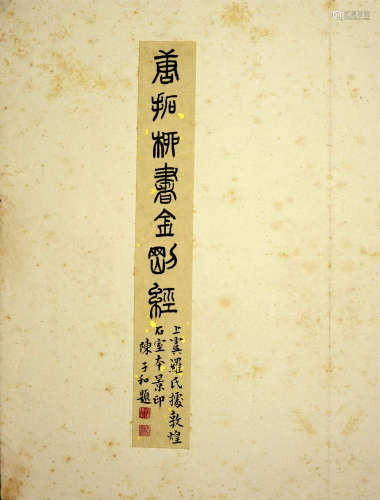 唐拓柳書金剛經
上虞羅氏據敦煌
石室本景印
陳子和題